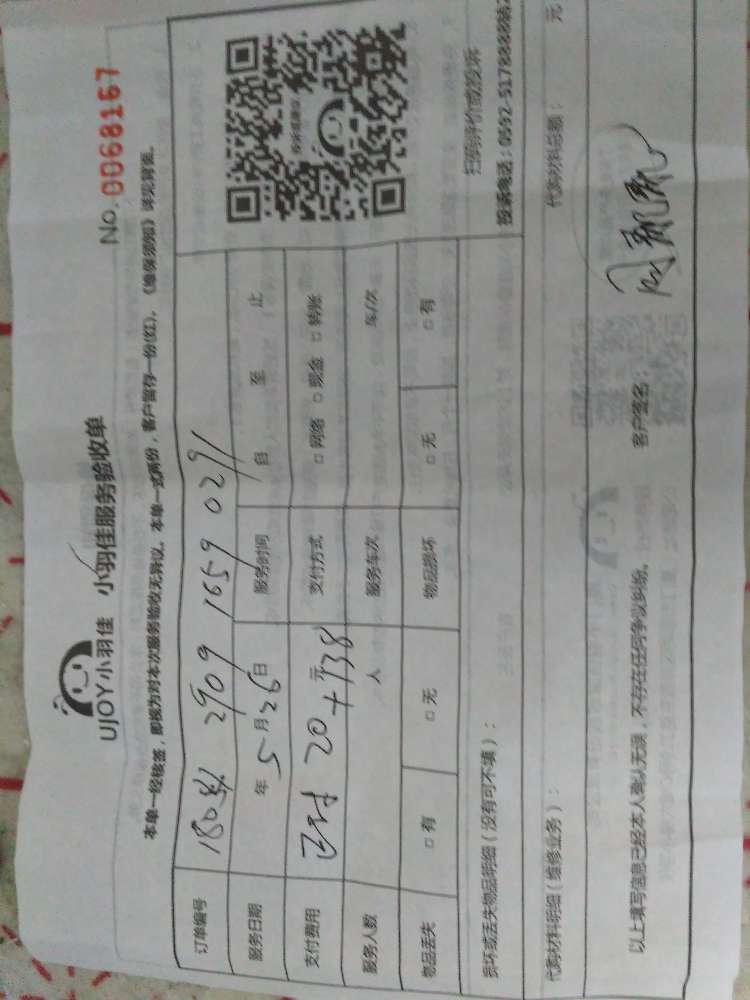 UJOY小羽佳 小羽佳服务验收单
No.0068167
本单一经核签，即视为对本次服务验收无异议。本单一式两份，客户留存一份(红)，《维保须知》详见背面。
订单编号 2909 1659 029
服务日期 年 5 月 26 日 服务时间 自 至 止
支付费用 已付 20+138 元 支付方式 □ 网络 □ 现金 □ 转账
服务人数 人 服务车次 车/次
物品丢失 □ 有 □ 无 物品损坏 □ 无 □ 有
扫码评价或投诉
投诉电话：0592-5178888转
损坏或丢失物品明细（没有可不填）：
代购材料明细（维修业务）： 代购材料总额： 元
以上填写信息已经本人确认无误，不存在任何争议纠纷。 客户签名：